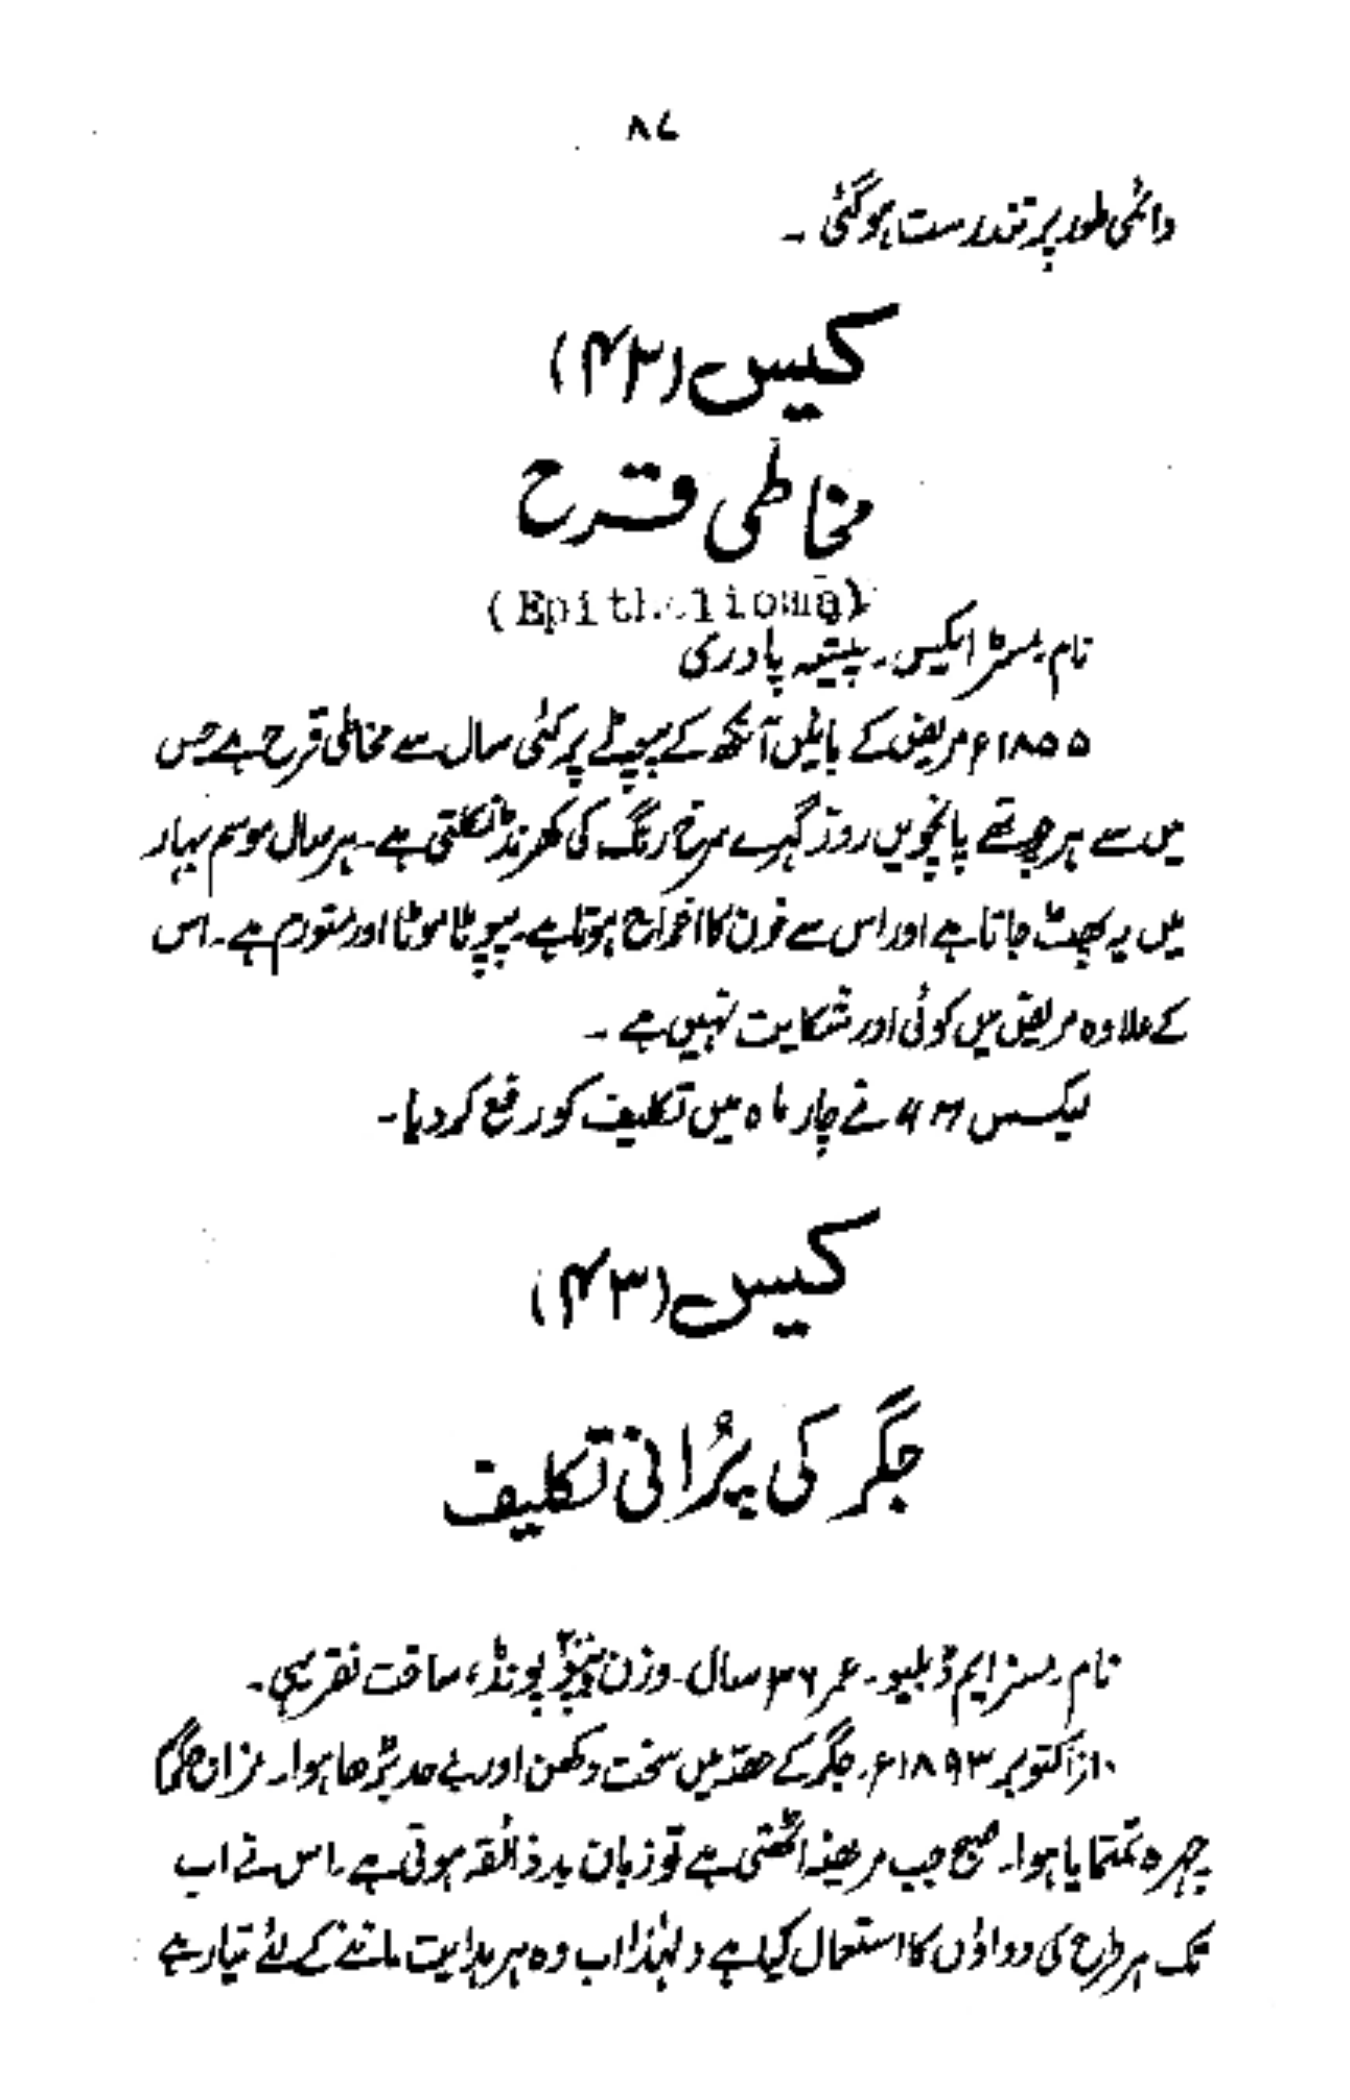 ۸۷
دائمی طور پر تندرست ہو گئی ۔
کیس (۴۲)
مخاطی قرح
(Epithelioma)
نام ۔ مسٹر ایکس ۔ پیشہ پادری
۱۸۵۵ء مریض کے بائیں آنکھ کے پپوٹے پر کئی سال سے مخاطی قرح ہے جس
میں سے ہر چوتھے پانچویں روز گہرے سرخ رنگ کی کھرنڈ نکلتی ہے ۔ ہر سال موسم بہار
میں یہ پھٹ جاتا ہے اور اس سے خون کا اخراج ہوتا ہے ۔ پپوٹا موٹا اور متورم ہے ۔ اس
کے علاوہ مریض میں کوئی اور شکایت نہیں ہے ۔
لیکسس نے چار ماہ میں تکلیف کو رفع کر دیا ۔
کیس (۴۳)
جگر کی پُرانی تکلیف
نام ۔ مسز ایم ڈبلیو ۔ عمر ۳۶ سال ۔ وزن پونڈ، ساخت نقرسی ۔
۱۰ اکتوبر ۱۸۹۳ء ۔ جگر کے حصّہ میں سخت دکھن اور بے حد بڑھا ہوا ۔
چہرہ تمتمایا ہوا ۔ صبح جب مریضہ اٹھتی ہے تو زبان بدذائقہ ہوتی ہے ۔ اس نے اب
تک ہر طرح کی دواؤں کا استعمال کیا ہے و لہٰذا اب وہ ہر ہدایت ماننے کے لئے تیار ہے